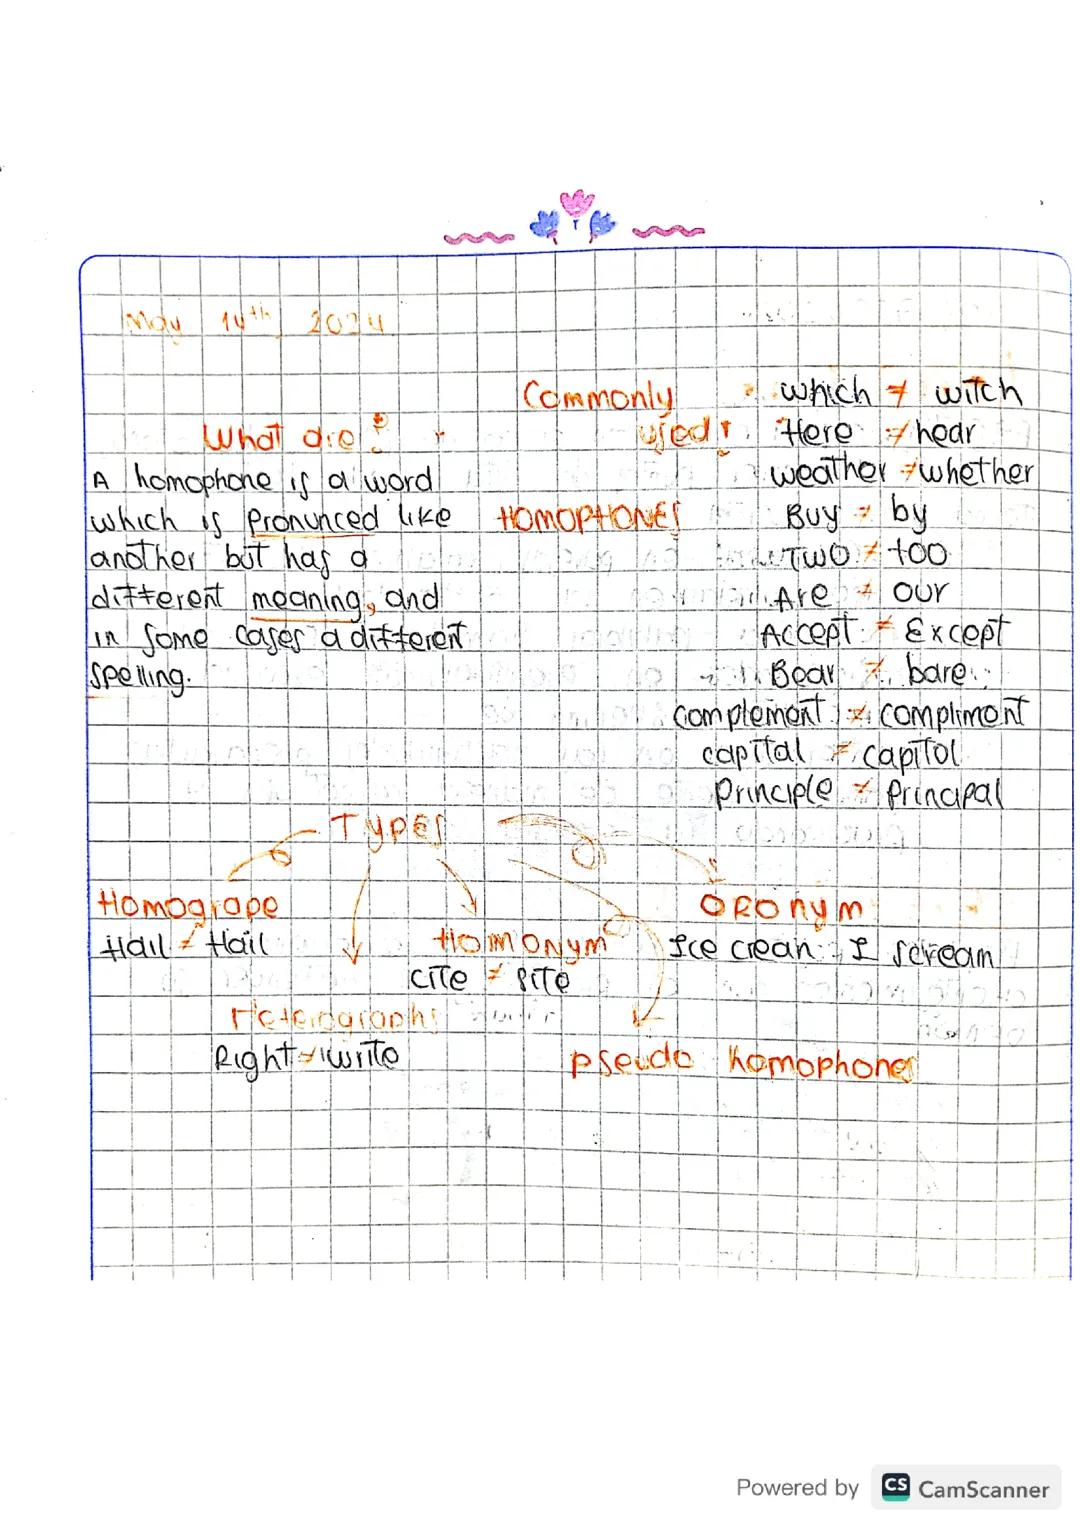 May 14th 2024
Commonly used:
What are?
A homophone is a word
which is pronunced like
another but has a
different meaning, and
in some cases a different
spelling.
HOMOPHONES
which ≠ witch
Here ≠ hear
weather ≠ whether
Buy ≠ by
Two ≠ too
Are ≠ our
Accept ≠ Except
Bear ≠ bare
complement ≠ compliment
capital ≠ capitol
Principle ≠ Principal
TYPES
Homogrape
Hail ≠ Hail
Heterographs
Right ≠ write
Homonym
cite ≠ site
Oronym
Ice crean ≠ I scream
pseudo homophones
Powered by CS CamScanner